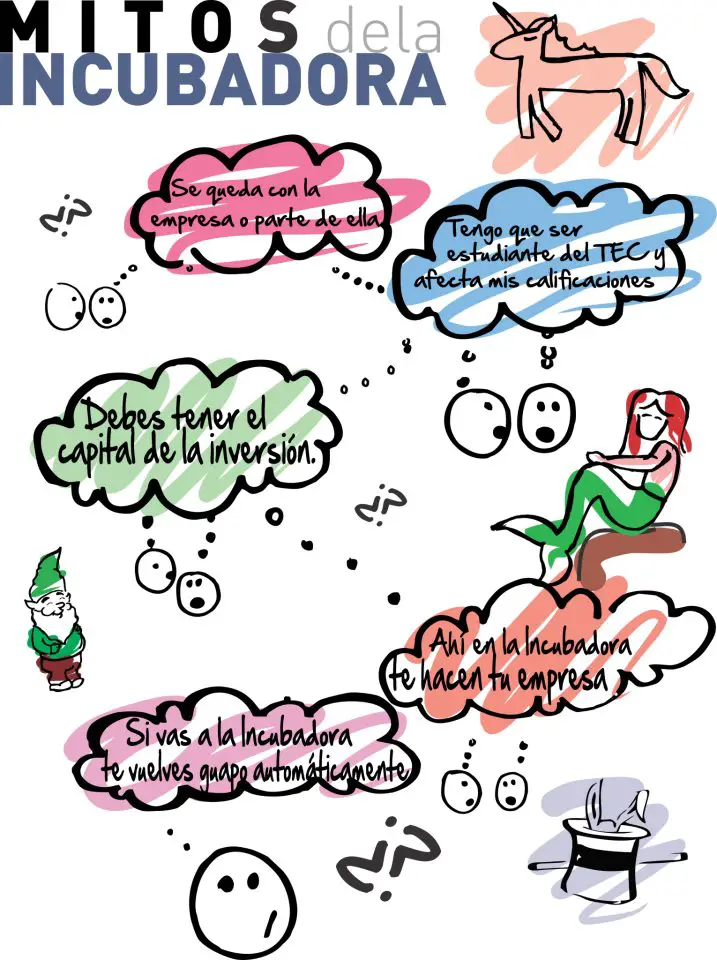 MITOS dela
INCUBADORA
Se queda con la
empresa o parte de ella
Tengo que ser
estudiante del TEC y
afecta mis calificaciones
Debes tener el
capital de la inversión.
Ahí en la Incubadora
te hacen tu empresa
Si vas a la Incubadora
te vuelves guapo automáticamente